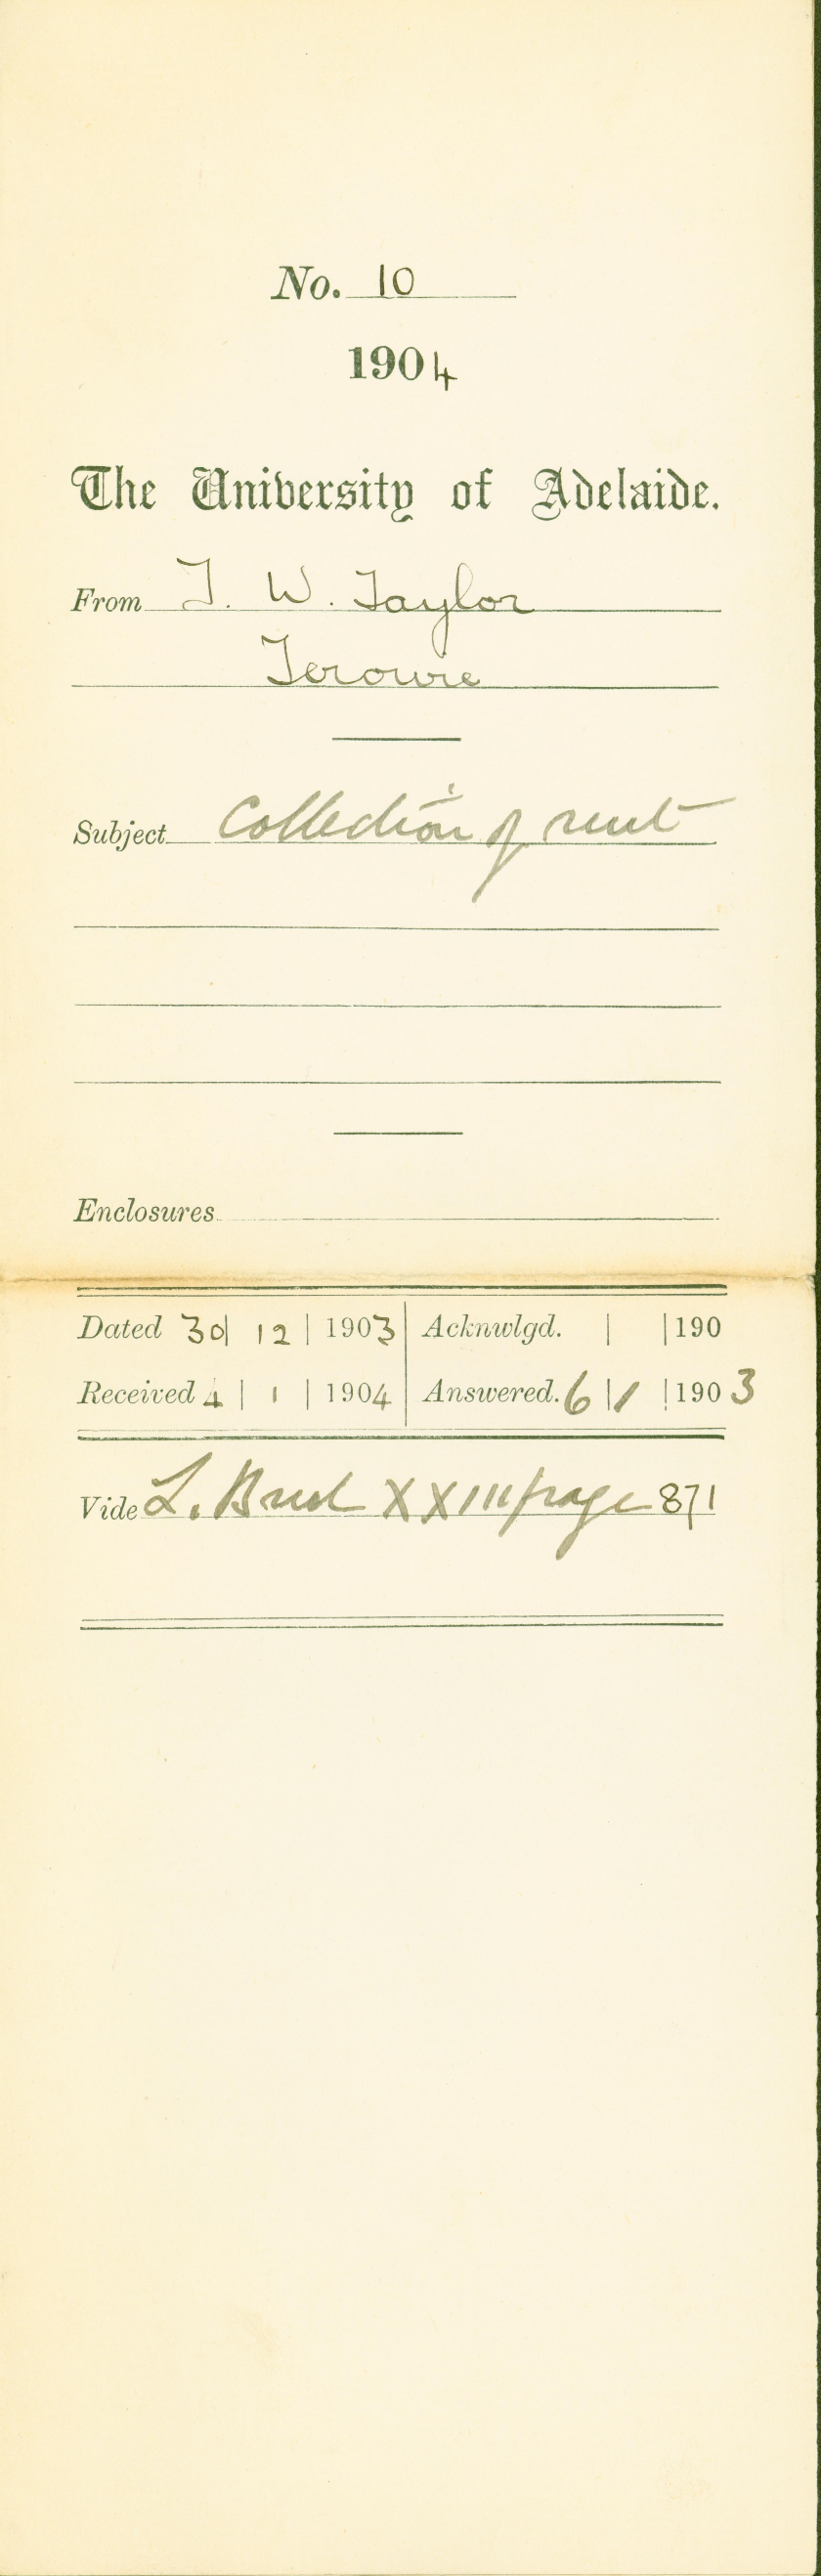 No. 10
1904
The University of Adelaide.
From T. W. Taylor
Terowie
Subject Collection of rent
Enclosures
Dated 30 | 12 | 1903 Acknwlgd. | | 190
Received 4 | 1 | 1904 Answered. 6 | 1 | 1903
Vide L. Book XXIII page 871